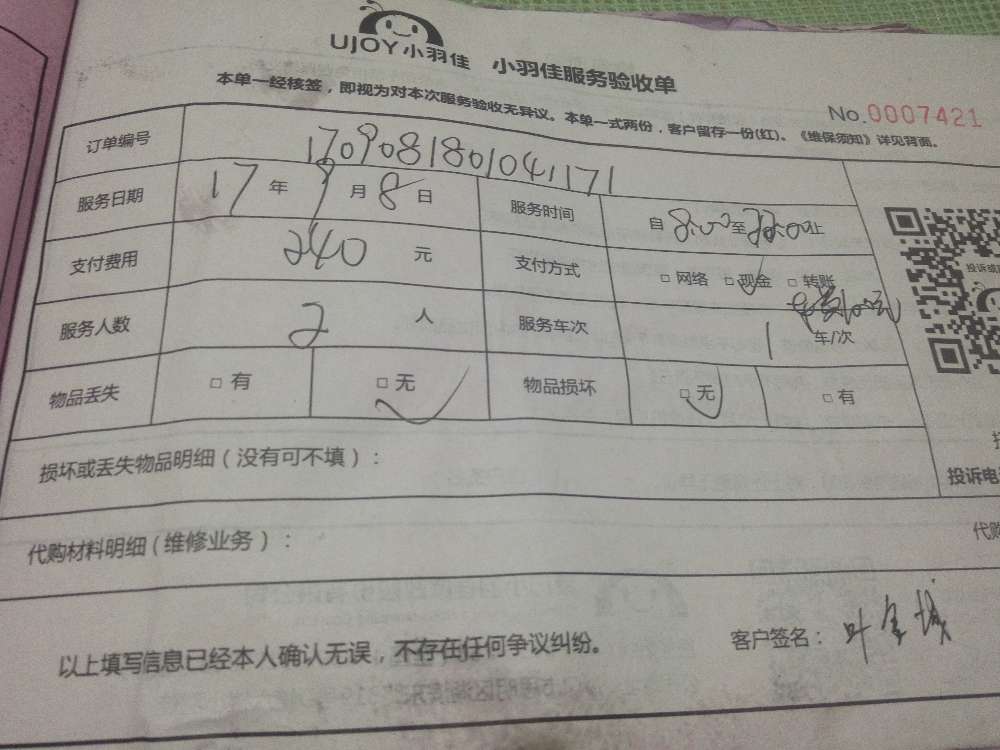 UJOY小羽佳 小羽佳服务验收单
本单一经核签，即视为对本次服务验收无异议。本单一式两份，客户留存一份(红)。《维保须知》详见背面。
No.0007421
订单编号 1709081801041171
服务日期 17年9月8日 服务时间 自8:00至22:00止
支付费用 240元 支付方式 □网络 □现金 □转账
服务人数 2人 服务车次 1车/次
物品丢失 □有 □无 物品损坏 □无 □有
投诉或
损坏或丢失物品明细（没有可不填）：
投诉电
代购材料明细（维修业务）：
代购
以上填写信息已经本人确认无误，不存在任何争议纠纷。
客户签名：叶